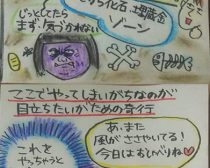 じっとしてたら
まず、気づかれない
化石、埋蔵金
ゾーン
ここでやってしまいがちなのが
目立ちたいがための奇行
これを
やっちゃうと
あ、また
風がささやいてる!
今日はおひがらね